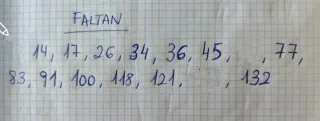 FALTAN
14, 17, 26, 34, 36, 45, , 77,
83, 91, 100, 118, 121, , 132